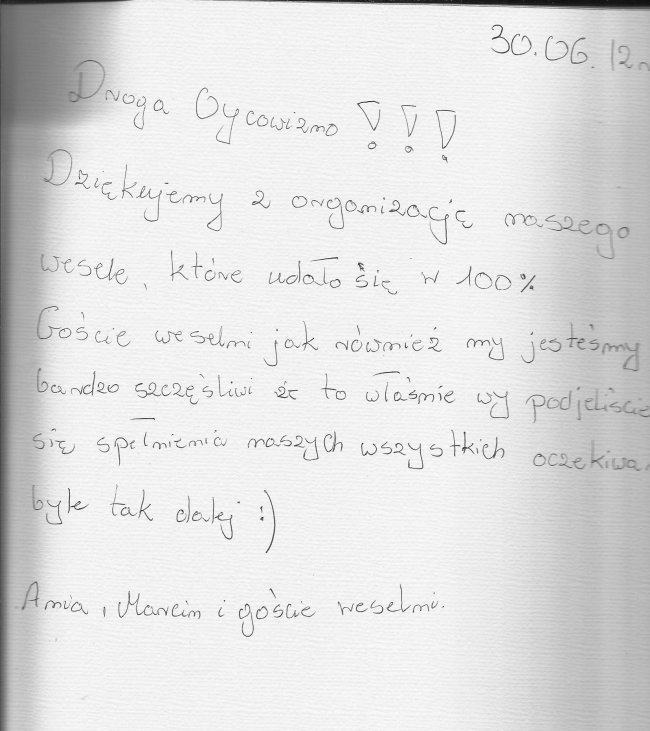 30.06.12r
Droga Oycowizno !!!
Dziękujemy z organizację naszego
wesele, które udało się w 100%
Goście weselni jak również my jesteśmy
bardzo szczęśliwi że to właśnie wy podjeliście
się spełnienia naszych wszystkich oczekiwa
byle tak dalej :)
Ania, Marcin i goście weselni.